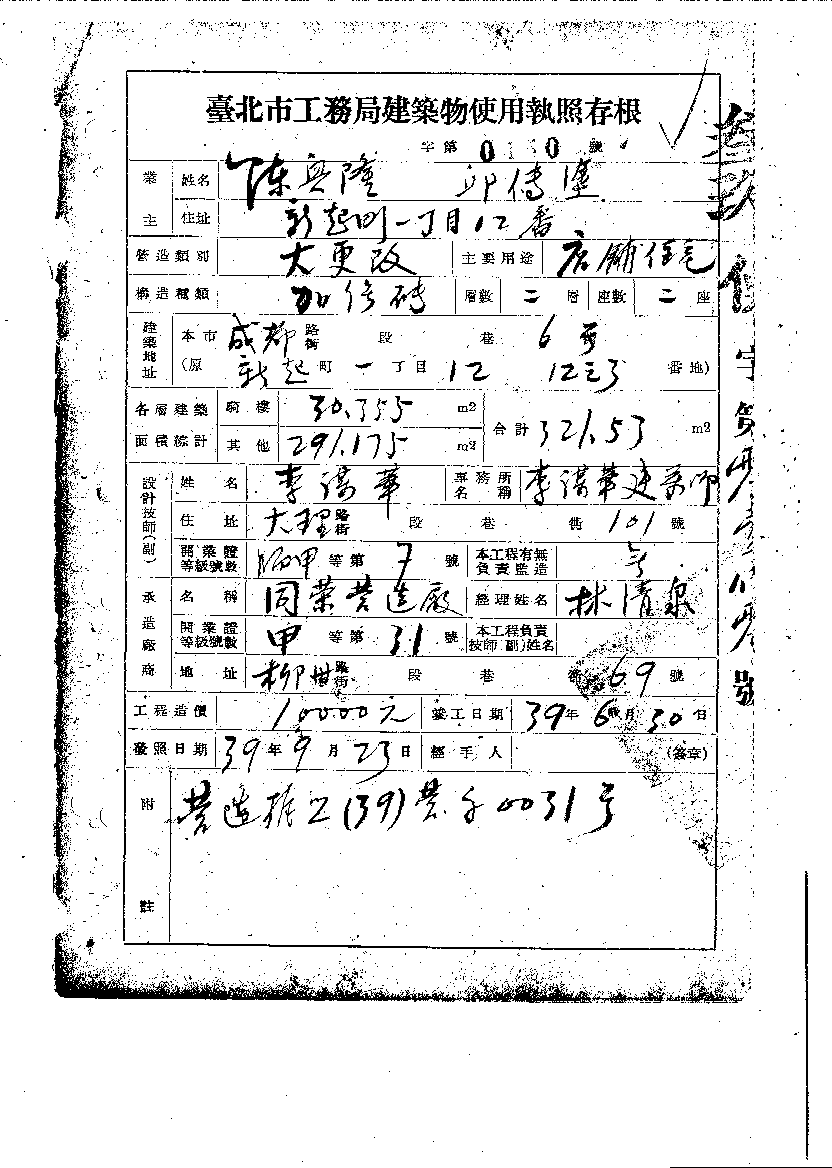 臺北市工務局建築物使用執照存根
字第 0130 號
業主 姓名 陳興隆 邱傳塗
住址 新起町一丁目12番
營造類別 大更改 主要用途 店舖住宅
構造種類 加強磚 層數 二 層 座數 二 座
建築地址 本市 成都 路街 段 巷 6号
(原 新起 町 一 丁目 12 12之3 番地)
各層建築面積綜計 騎樓 30.355 m2 合計 321.53 m2
其他 291.175 m2
設計技師(副) 姓名 李謀華 事務所名稱 李謀華建築師
住址 大理 路街 段 巷 衖 101 號
開業證等級號數 甲 等第 7 號 本工程有無負責監造
承造廠商 名稱 同榮營造廠 經理姓名 林清泉
開業證等級號數 甲 等第 31 號 本工程負責技師(副)姓名
地址 柳州 路街 段 巷 衖 69 號
工程造價 10000元 竣工日期 39年6月30日
發照日期 39年9月23日 經手人 (簽章)
附註 營造執工(39)營字0031号
字第
號